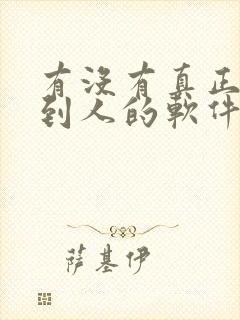 有没有真正
到人的軟件
萨基伊